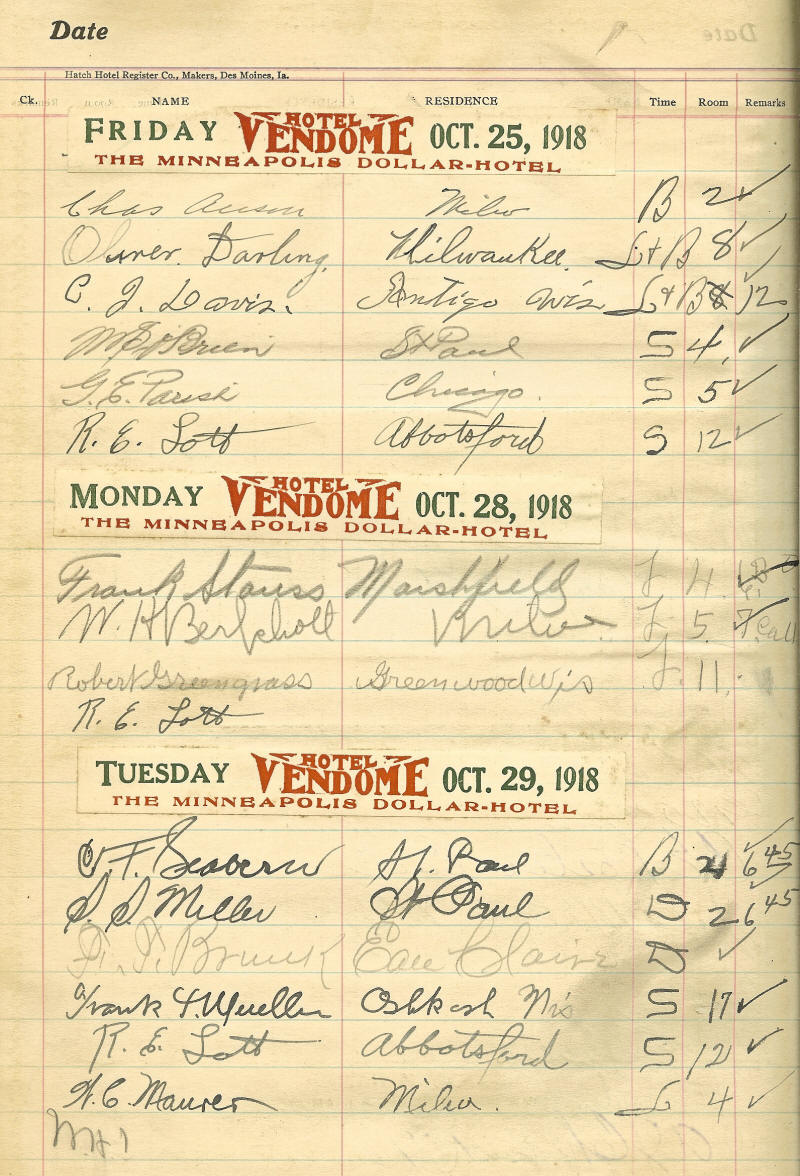 Date
Hatch Hotel Register Co., Makers, Des Moines, Ia.
Ck. NAME RESIDENCE Time Room Remarks
FRIDAY HOTEL VENDOME OCT. 25, 1918
THE MINNEAPOLIS DOLLAR-HOTEL
Chas Milw B 2 ✓
Oliver Darling Milwaukee. L + B 8 ✓
C. J. Davis. Antigo Wis L + B 12
O'Brien St Paul S 4 ✓
G. E. Parish Chicago. S 5 ✓
R. E. Lott Abbotsford S 12 ✓
MONDAY HOTEL VENDOME OCT. 28, 1918
THE MINNEAPOLIS DOLLAR-HOTEL
Frank Stauss Marshfield L 4
W. H. Milw L 5. 7 Call
Robert Greengrass Greenwood Wis L 11
R. E. Lott
TUESDAY HOTEL VENDOME OCT. 29, 1918
THE MINNEAPOLIS DOLLAR-HOTEL
St. Paul B 6 45
S. S. Miller St Paul D 2 6 45
Eau Claire D ✓
Frank Mueller Oshkosh Wis S 17 ✓
R. E. Lott Abbotsford S 12 ✓
H. C. Maurer Milw. L 4 ✓